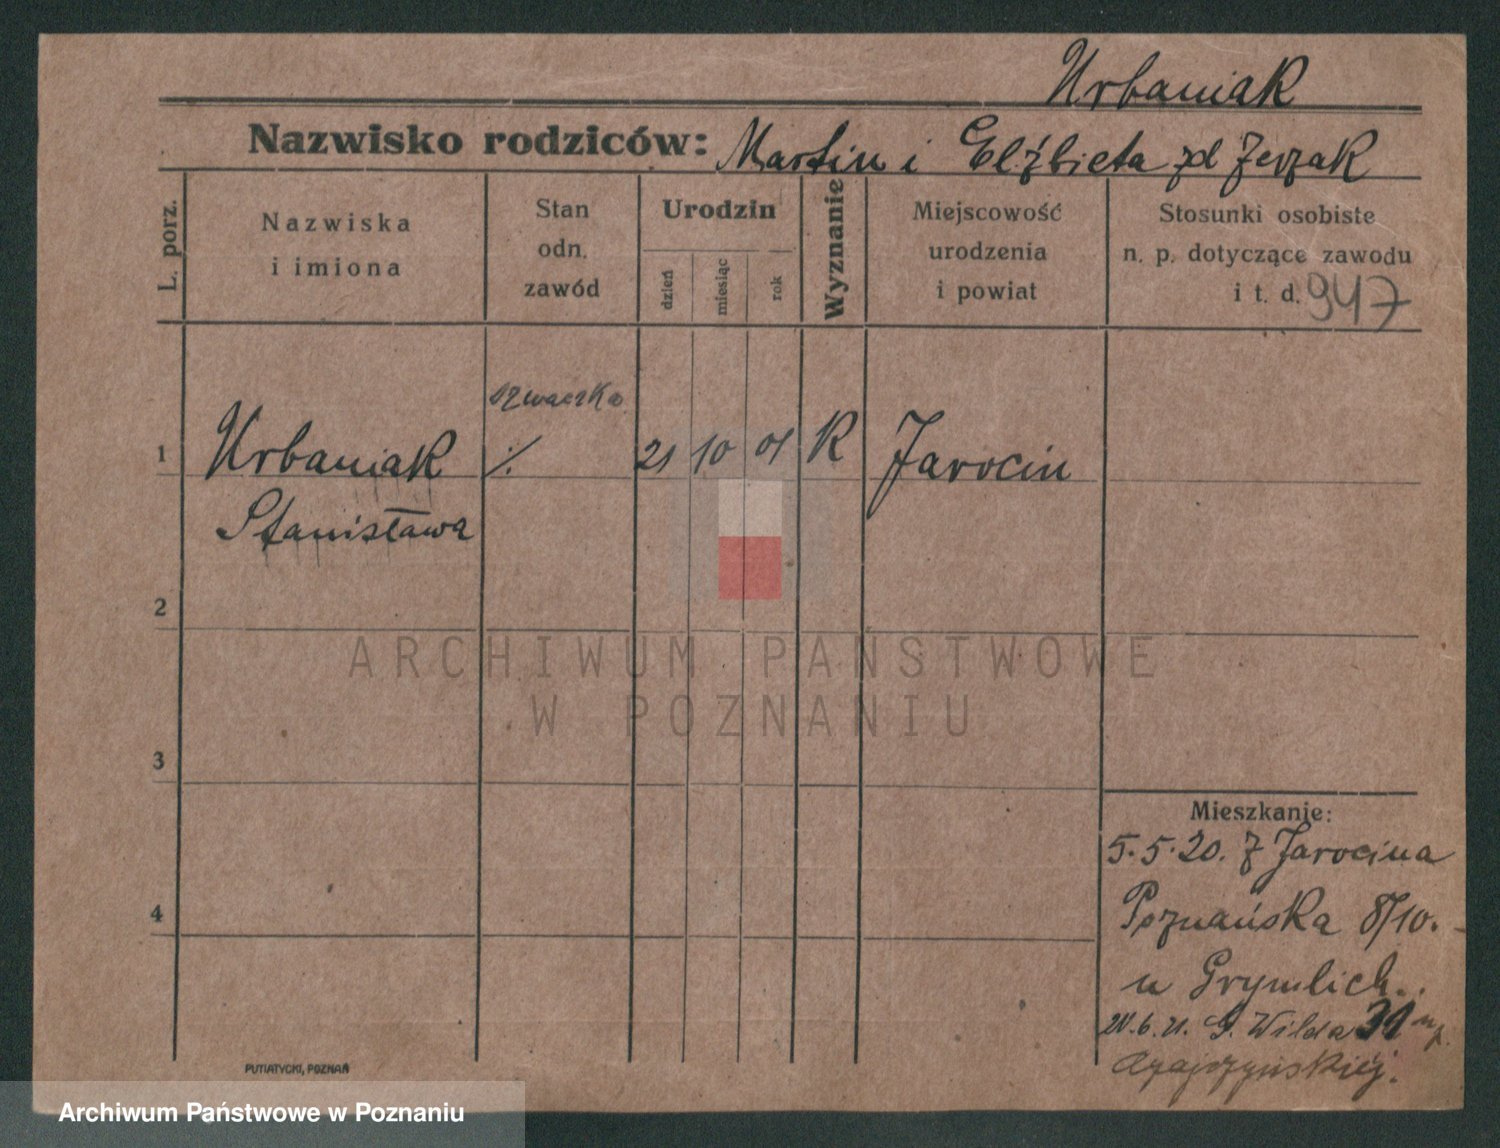 Urbaniak
Nazwisko rodziców: Martin i Elżbieta zd Jerzak
L. porz.
Nazwiska
i imiona
Stan
odn.
zawód
Urodzin
dzień
miesiąc
rok
Wyznanie
Miejscowość
urodzenia
i powiat
Stosunki osobiste
n. p. dotyczące zawodu
i t. d. 947
szwaczka
1 Urbaniak ./. 21 10 01 K Jarocin
Stanisława
2
ARCHIWUM PAŃSTWOWE
W POZNANIU
3
Mieszkanie:
5.5.20. z Jarocina
4
Poznańska 8/10.
u Grymlich.
6. 21. G. Wilda 31
PUTIATYCKI, POZNAŃ
Archiwum Państwowe w Poznaniu